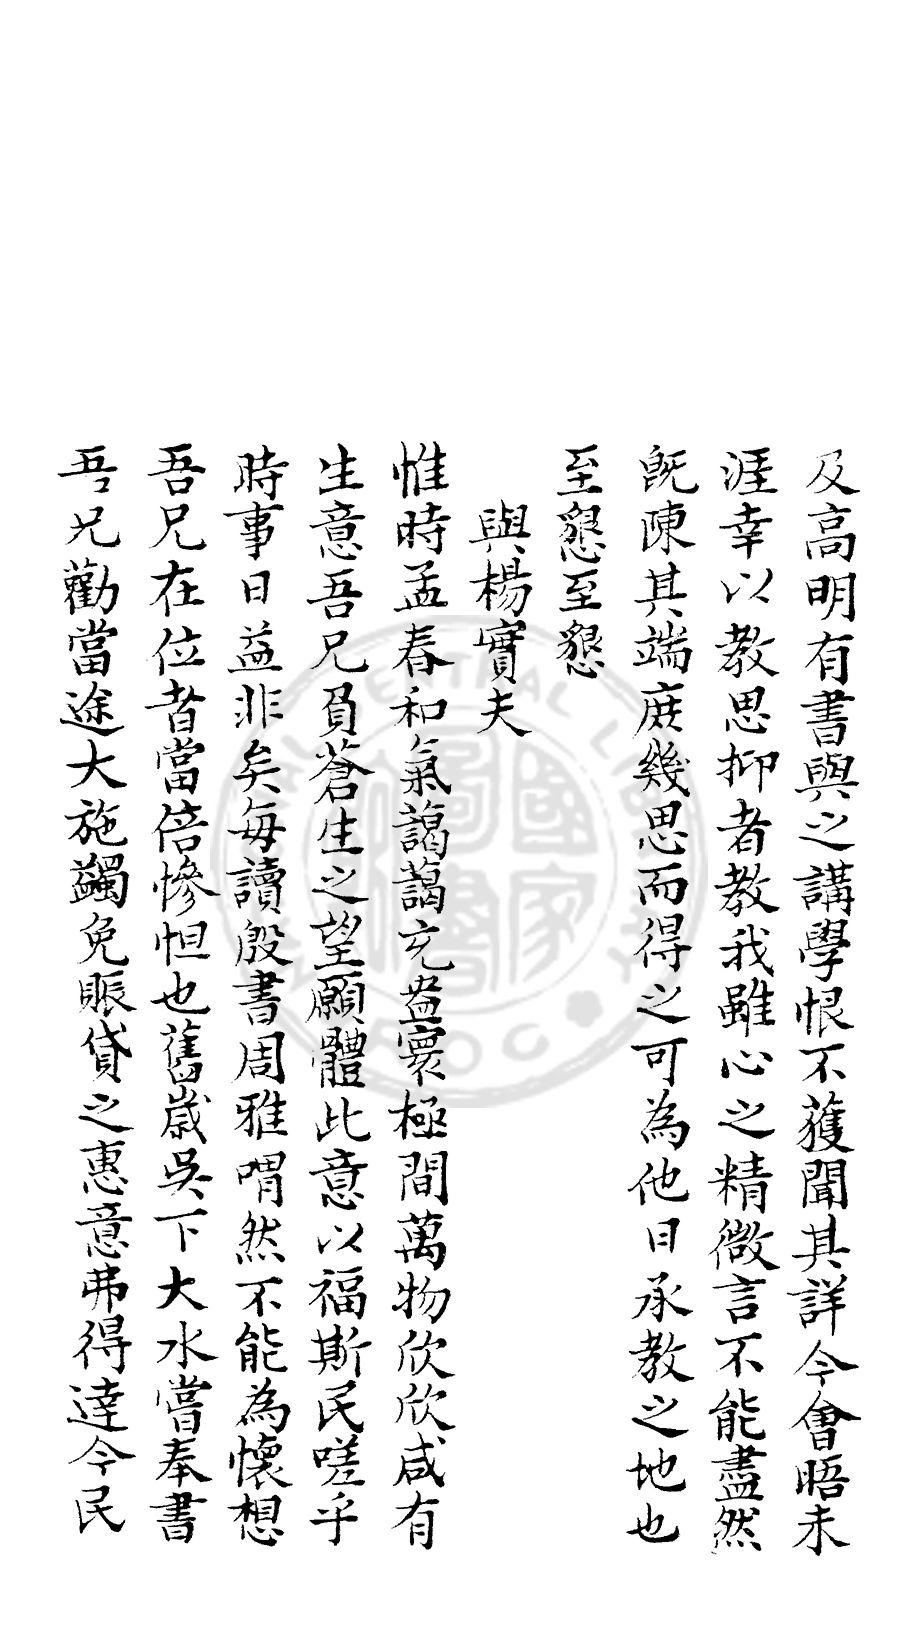 及高明有書與之講學恨不獲聞其詳今會晤未
涯幸以教思抑者教我雖心之精微言不能盡然
既陳其端庶幾思而得之可為他日承教之地也
至懇至懇
與楊實夫
惟時孟春和氣藹藹充盎寰極間萬物欣欣咸有
生意吾兄負蒼生之望願體此意以福斯民嗟乎
時事日益非矣每讀殷書周雅喟然不能為懷想
吾兄在位者當倍慘怛也舊歲吳下大水嘗奉書
吾兄勸當途大施蠲免賑貸之惠意弗得達今民